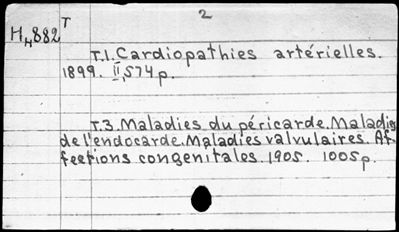 2
H4882 T
T.1. Cardiopathies artérielles.
1899. II, 574 p.
T.3. Maladies du péricarde. Maladies
de l'endocarde. Maladies valvulaires. Af-
fections congenitales. 1905. 1005 p.